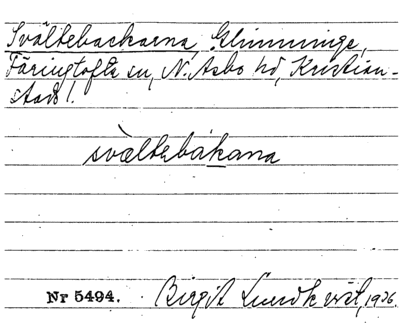 Svältebackarna, Glimminge,
Färingtofta sn, N. Åsbo hd, Kristian-
stads l.
svæltebákana
Nr 5494. Birgit Lundkvist, 1926.